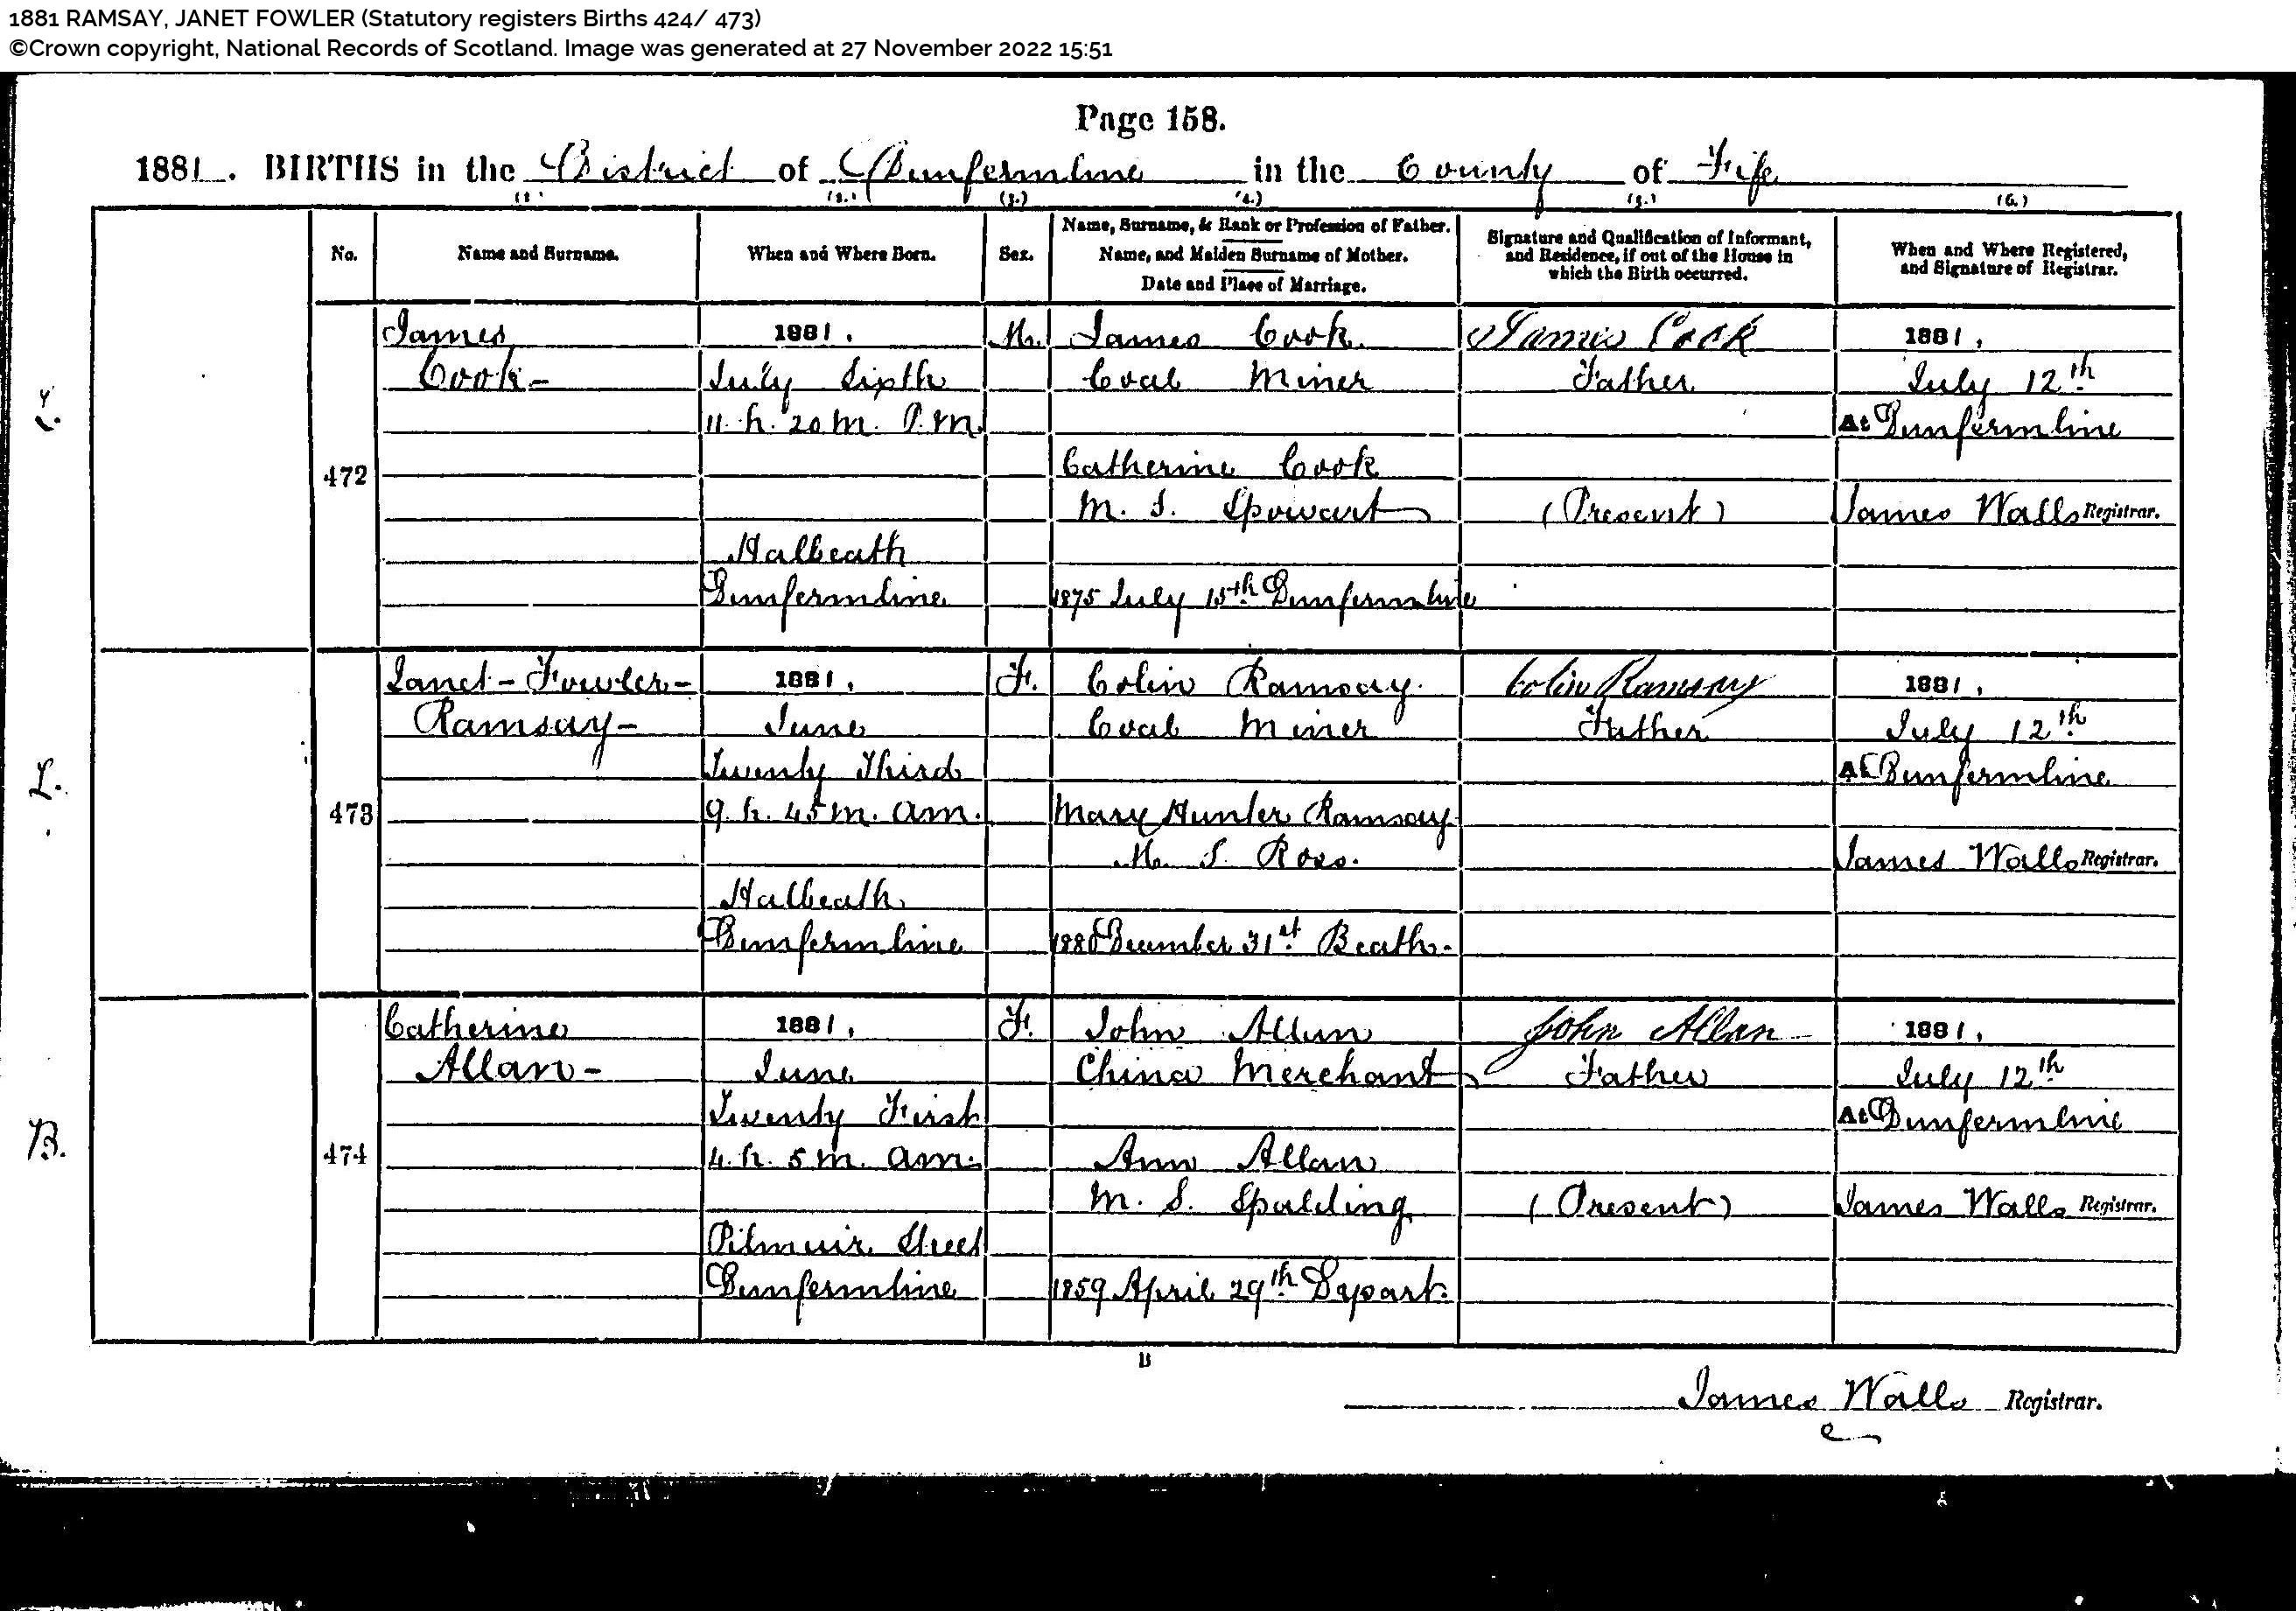 1881 RAMSAY, JANET FOWLER (Statutory registers Births 424/ 473)
©Crown copyright, National Records of Scotland. Image was generated at 27 November 2022 15:51
Page 158.
1881. BIRTHS in the District of Dunfermline in the County of Fife
(1.) (2.) (3.) (4.) (5.) (6.)
No.
Name and Surname.
When and Where Born.
Sex.
Name, Surname, & Rank or Profession of Father.
Name, and Maiden Surname of Mother.
Date and Place of Marriage.
Signature and Qualification of Informant,
and Residence, if out of the House in
which the Birth occurred.
When and Where Registered,
and Signature of Registrar.
472
James
Cook-
1881.
July Sixth
11. h. 20 m. P.M.
Halbeath
Dunfermline
M.
James Cook
Coal Miner
Catherine Cook
M. S. Spowart
1875 July 15th Dunfermline
James Cook
Father
(Present)
1881.
July 12th
At Dunfermline
James Walls Registrar.
L.
473
Janet-Fowler-
Ramsay-
1881.
June
Twenty Third
9. h. 45 m. am.
Halbeath
Dunfermline
F.
Colin Ramsay.
Coal Miner
Mary Hunter Ramsay
M. S. Ross.
1880 December 31st Beath.-
Colin Ramsay
Father
1881.
July 12th
At Dunfermline
James Walls Registrar.
B.
474
Catherine
Allan-
1881.
June
Twenty First
4. h. 5 m. am.
Pilmuir Street
Dunfermline
F.
John Allan
China Merchant
Ann Allan
M. S. Spalding
1859 April 29th Dysart.
John Allan
Father
(Present)
1881.
July 12th
At Dunfermline
James Walls Registrar.
B
James Walls Registrar.